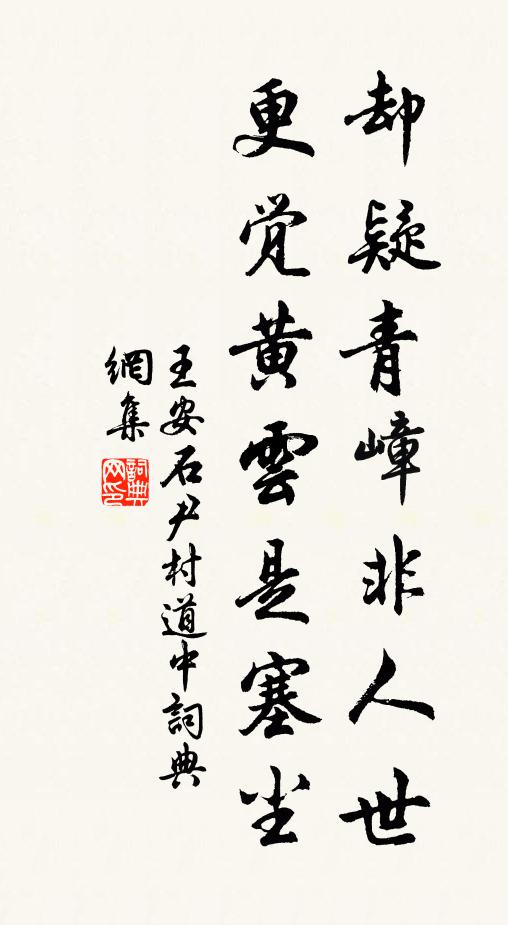 却疑青嶂非人世
更觉黄雲是塞尘
王安石尹村道中詞典
網集
詞典网印